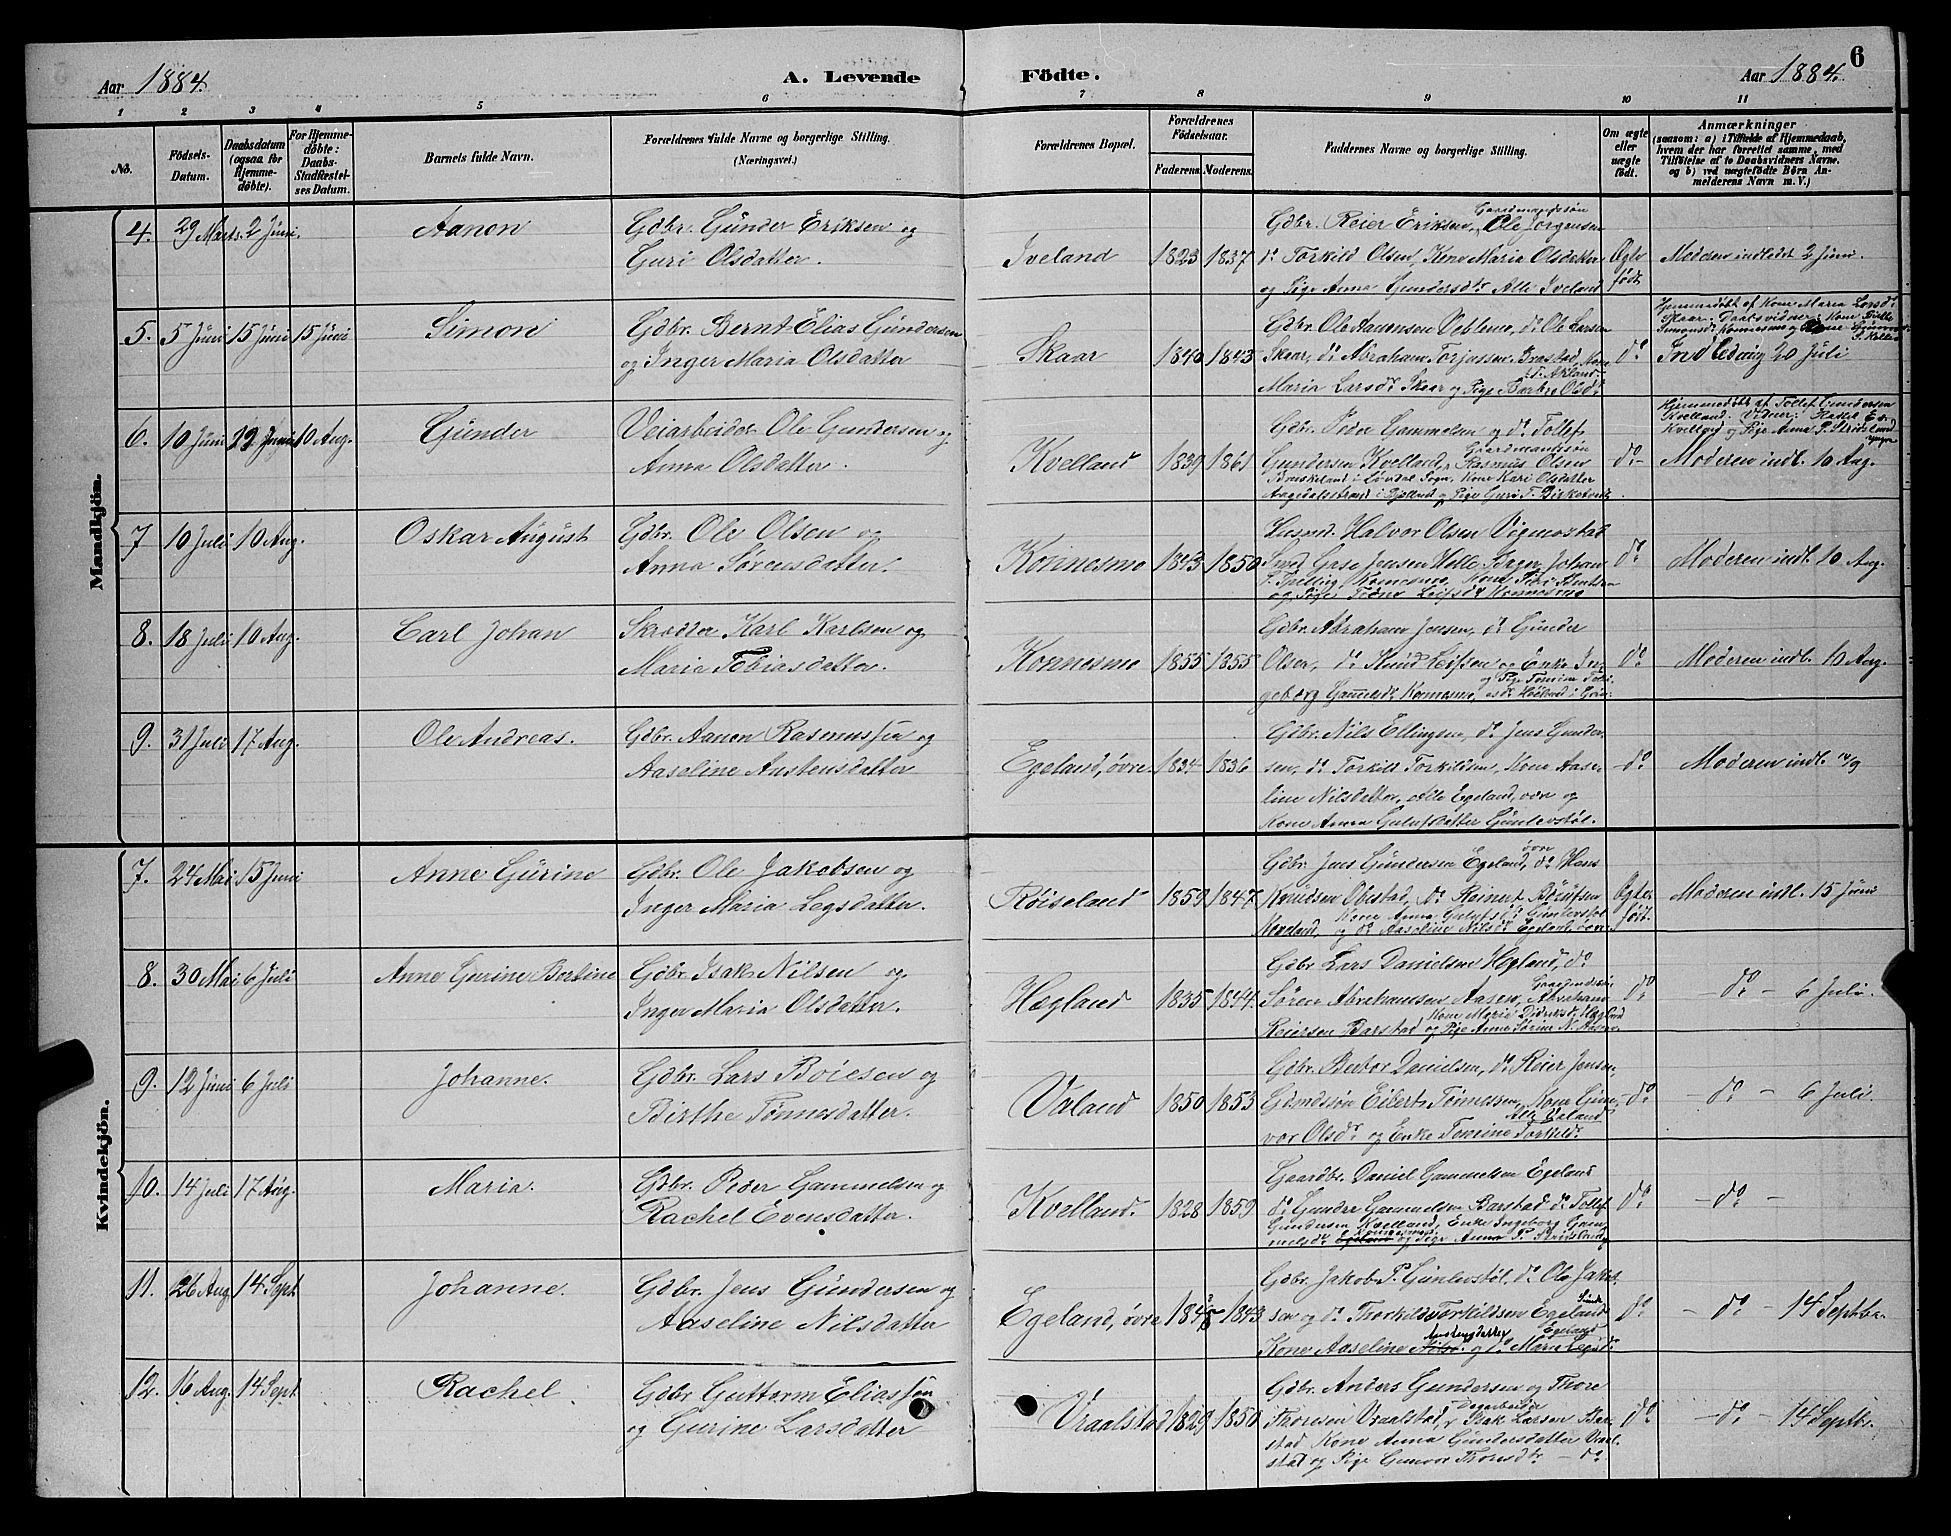 Aar 1884.
A. Levende Födte.
Aar 1884.
6
1 2 3 4 5 6 7 8 9 10 11
No.
Födsels-Datum.
Daabsdatum (ogsaa for Hjemme-döbte).
For Hjemme-döbte: Daabs-Stadfæstel-ses Datum.
Barnets fulde Navn.
Forældrenes fulde Navne og borgerlige Stilling. (Næringsvei.)
Forældrenes Bopæl.
Forældrenes Födselsaar.
Faderens. Moderens.
Faddernes Navne og borgerlige Stilling.
Om ægte eller uægte födt.
Anmærkninger
(saasom: a) i Tilfælde af Hjemmedaab,
hvem der har forrettet samme, med
Tilföielse af to Daabsvidners Navne.
og b) ved uægtefödte Börn An-
melderens Navn m. V.)
Mandkjön.
4. 29 Marts. 2 Juni. Aanon
Gdbr. Gunder Eriksen og
Guri Olsdatter.
Iveland 1823 1837
Gdbr. Reier Eriksen, Gaardmandssøn Ole Jørgensen
do Torkild Olsen, Kone Maria Olsdatter
og Pige Anna Gundersdr. Alle Iveland
Ægte født
Moderen indledet 2 Juni.
5. 5 Juni 15 Juni 15 Juni Simon
Gdbr. Bernt Elias Gundersen
og Inger Maria Olsdatter
Skaar 1840 1843
Gdbr. Ole Aanensen Veblene, do Ole Larsen
Skaar, do Abraham Torjussen Brastad, Kone
Maria Larsdr Skaar og Pige Barbro Olsdr
do
Hjemmedøbt af Kone Maria Larsdr
Skaar. Daabsvidner: Kone
Indledning 20 Juli
6. 10 Juni 22 Juni 10 Aug. Gunder
Veiarbeider Ole Gundersen og
Anna Olsdatter.
Kvelland 1839 1861
Gdbr. Peder Gammelsen og do Tollef
Gundersen Kvelland, Gaardmandssøn Rasmus Olsen
i Løvdal Sogn, Kone Kari Olsdatter
i Bjelland og Pige Guri T.
do
Hjemmedøbt af Tollef Gundersen
Kvelland. Vidner: Rachel E.
Kvelland og Pige Anna P. Strisland
Moderen indl. 10 Aug.
7 10 Juli 10 Aug. Oskar August
Gdbr. Ole Olsen og
Anna Sørensdatter.
Konnesmo 1843 1850
Husmd. Halvor Olsen Vigmostad
Smed Jensen Helle Johan
Konnesmo, Kone
og Pige Leifsdr Konnesmo
do
Moderen indl. 10 Aug.
8. 18 Juli 10 Aug. Carl Johan
Skrædder Karl Karlsen og
Maria Tobiasdatter.
Konnesmo 1855 1855
Gdbr. Abraham Jensen, do Gunder
Olsen, do Knud Leifsen og Enke In-
geborg Gammelsdr Konnesmo, og Pige Tomine Tobi-
asdr Høiland i
do
Moderen indl. 10 Aug.
9. 31 Juli 17 Aug. Ole Andreas.
Gdbr. Aanon Rasmussen og
Aaseline Austensdatter
Egeland, øvre 1834 1836
Gdbr. Nils Ellingsen, do Jens Gunder-
sen, do Torkild Torkildsen, Kone Aase-
line Nilsdatter, Alle Egeland, øvre og
Kone Anna Gulufsdatter Gunlevstøl.
do
Moderen indl. 14/9
Kvindekjön.
7. 24 Mai 15 Juni Anne Gurine
Gdbr. Ole Jakobsen og
Inger Maria Legsdatter.
Røiseland 1859 1847
Gdbr. Jens Gundersen Egeland, øvre do Hans
Knudsen Obestad, do Reinert Børufsen
Moseland, Kone Anna Gulufsdr Gunlevstøl
og do Aaseline Nilsdr Egeland, øvre
Ægte født.
Moderen indl. 15 Juni
8. 30 Mai 6 Juli Anne Gurine Bertine
Gdbr. Isak Nilsen og
Inger Maria Olsdatter.
Hægland 1835 1844.
Gdbr Lars Danielsen Hegland, do
Søren Abrahamsen Aasen, Gaardmdssøn Abraham
Reiersen Barstad Kone Marie Didriksdr Hægland
og Pige Anne Sørine N. Aasen
do
— do — 6 Juli.
9. 12 Juni 6 Juli Johanne.
Gdbr. Lars Boiesen og
Birthe Tønnesdatter.
Valand 1850 1853
Gdbr. Berthor Danielsen, do Reier Jensen,
Gdmdssøn Eibert Tønnessen, Kone Gun-
vor Olsdr og Enke Tomine Torkildr Alle Valand
do
— do — 6 Juli.
10. 14 Juli 17 Aug. Maria.
Gdbr. Peder Gammelsen og
Rachel Evensdatter.
Kvelland. 1828 1859
Gaardbr. Daniel Gammelsen Egeland
do Gunder Gammelsen Barstad do Tollef
Gundersen Kvelland, Enke Ingeborg Gam-
melsdr Egeland Konnesmo og Pige Anna P. Strisland
do
— do —
11. 26 Aug. 14 Sept. Johanne.
Gdbr. Jens Gundersen og
Aaseline Nilsdatter
Egeland, øvre 1843
Gdbr. Jakob P. Gunlevstøl, do Ole Jakob-
sen og do Thorkild Torkildsen Egeland
Kone Aaseline Nilsdr Austensdatter Egeland og do Maria Legsdr
do
— do — 14 Septbr.
12. 16 Aug. 14 Sept. Rachel
Gdbr Guttorm Eliassen
og Gurine Larsdatter
Vraalstad 1829 1850
Gdbr. Anders Gundersen og Thore
Thoresen Vraalstad, Dagarbeider Isak Larsen Bar-
stad Kone Anna Gundersdatter Vraal-
stad og Pige Gunvor Thorsdr — do
do
— do — 14 Septbr.